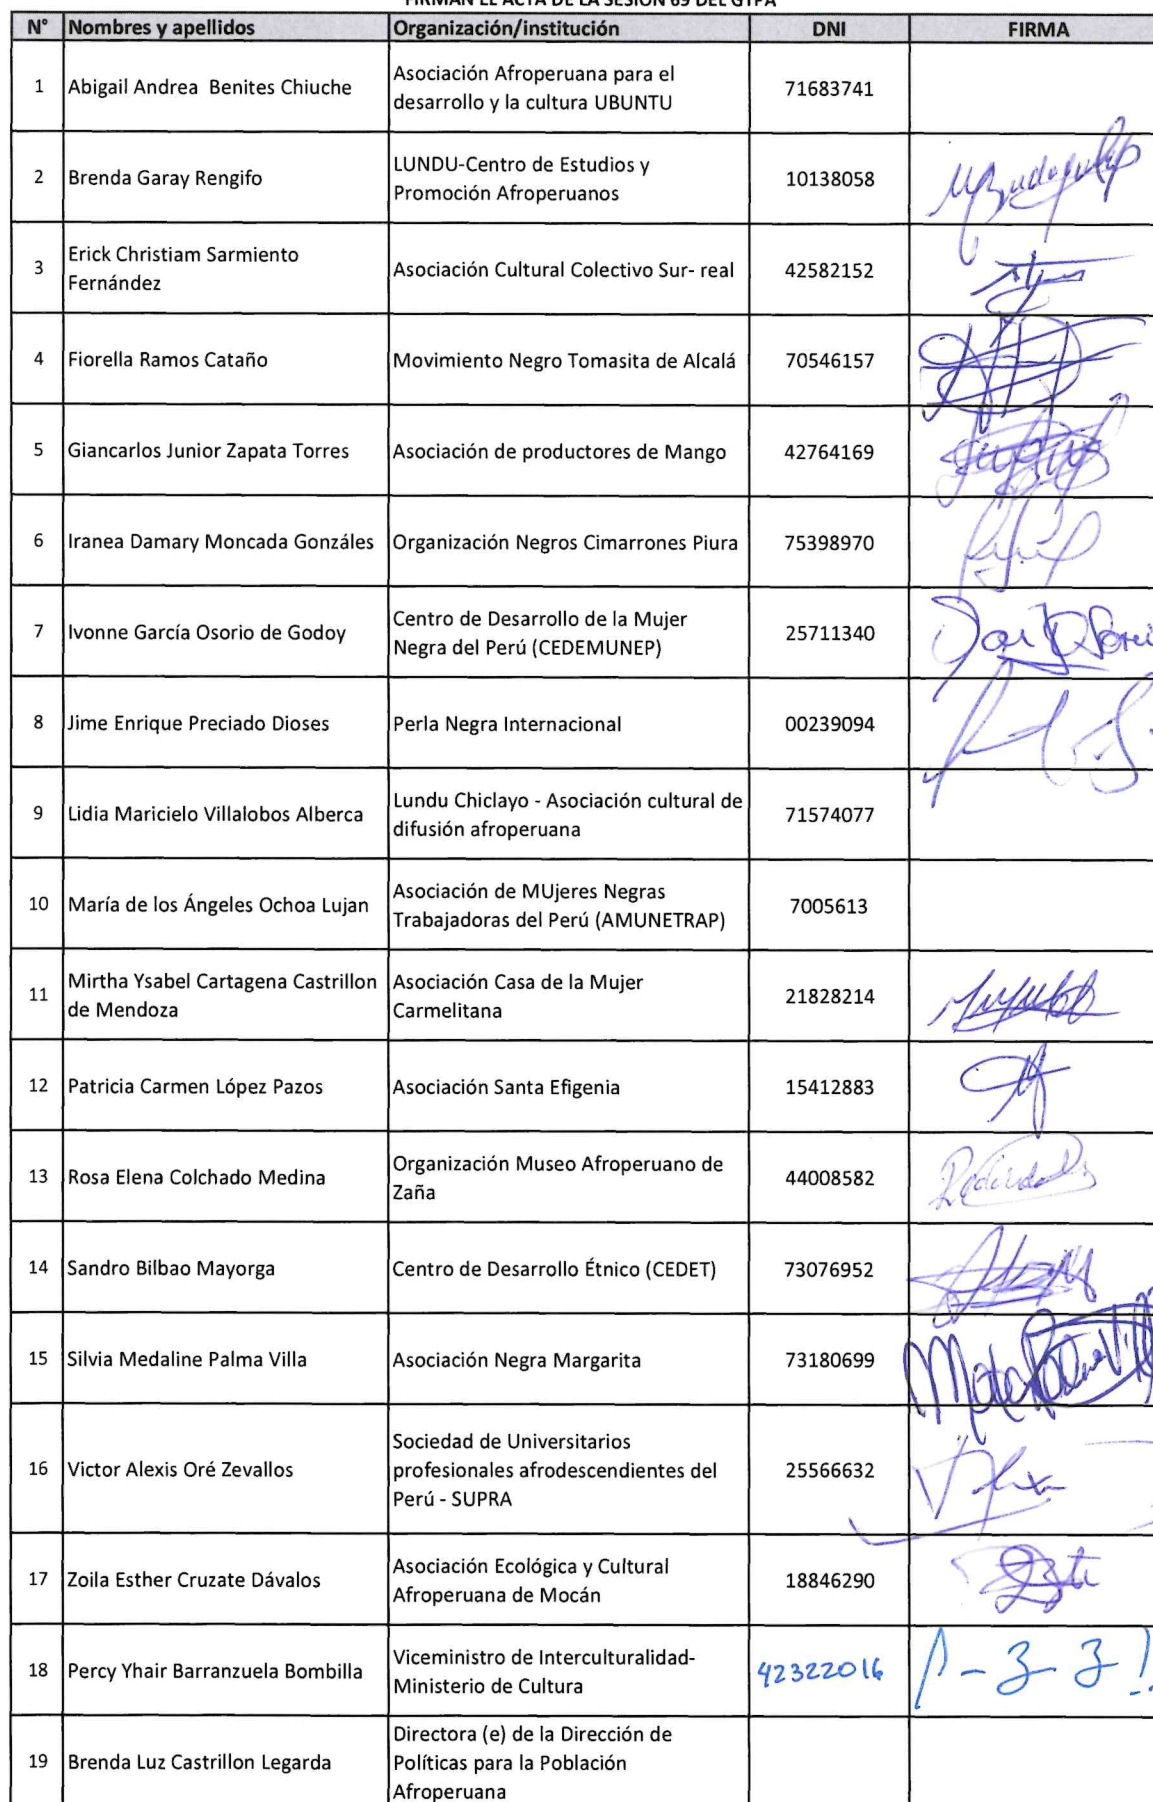 FIRMAN EL ACTA DE LA SESIÓN 69 DEL GTPA
N° Nombres y apellidos Organización/institución DNI FIRMA
1 Abigail Andrea Benites Chiuche Asociación Afroperuana para el
desarrollo y la cultura UBUNTU 71683741
2 Brenda Garay Rengifo LUNDU-Centro de Estudios y
Promoción Afroperuanos 10138058
3 Erick Christiam Sarmiento
Fernández Asociación Cultural Colectivo Sur- real 42582152
4 Fiorella Ramos Cataño Movimiento Negro Tomasita de Alcalá 70546157
5 Giancarlos Junior Zapata Torres Asociación de productores de Mango 42764169
6 Iranea Damary Moncada Gonzáles Organización Negros Cimarrones Piura 75398970
7 Ivonne García Osorio de Godoy Centro de Desarrollo de la Mujer
Negra del Perú (CEDEMUNEP) 25711340
8 Jime Enrique Preciado Dioses Perla Negra Internacional 00239094
9 Lidia Maricielo Villalobos Alberca Lundu Chiclayo - Asociación cultural de
difusión afroperuana 71574077
10 María de los Ángeles Ochoa Lujan Asociación de MUjeres Negras
Trabajadoras del Perú (AMUNETRAP) 7005613
11 Mirtha Ysabel Cartagena Castrillon
de Mendoza Asociación Casa de la Mujer
Carmelitana 21828214
12 Patricia Carmen López Pazos Asociación Santa Efigenia 15412883
13 Rosa Elena Colchado Medina Organización Museo Afroperuano de
Zaña 44008582
14 Sandro Bilbao Mayorga Centro de Desarrollo Étnico (CEDET) 73076952
15 Silvia Medaline Palma Villa Asociación Negra Margarita 73180699
16 Victor Alexis Oré Zevallos Sociedad de Universitarios
profesionales afrodescendientes del
Perú - SUPRA 25566632
17 Zoila Esther Cruzate Dávalos Asociación Ecológica y Cultural
Afroperuana de Mocán 18846290
18 Percy Yhair Barranzuela Bombilla Viceministro de Interculturalidad-
Ministerio de Cultura 42322016
19 Brenda Luz Castrillon Legarda Directora (e) de la Dirección de
Políticas para la Población
Afroperuana